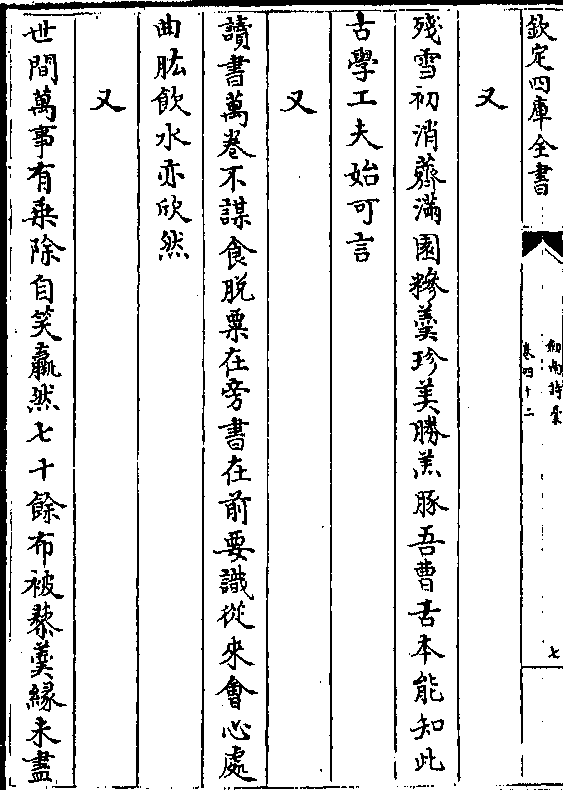 欽定四庫全書
劍南詩稾
卷四十二
七
又
殘雪初消薺滿園糝羹珍美勝羔豚吾曹舌本能知此
古學工夫始可言
又
讀書萬卷不謀食脫粟在旁書在前要識從來會心處
曲肱飲水亦欣然
又
世間萬事有乗除自笑羸然七十餘布被藜羹緣未盡